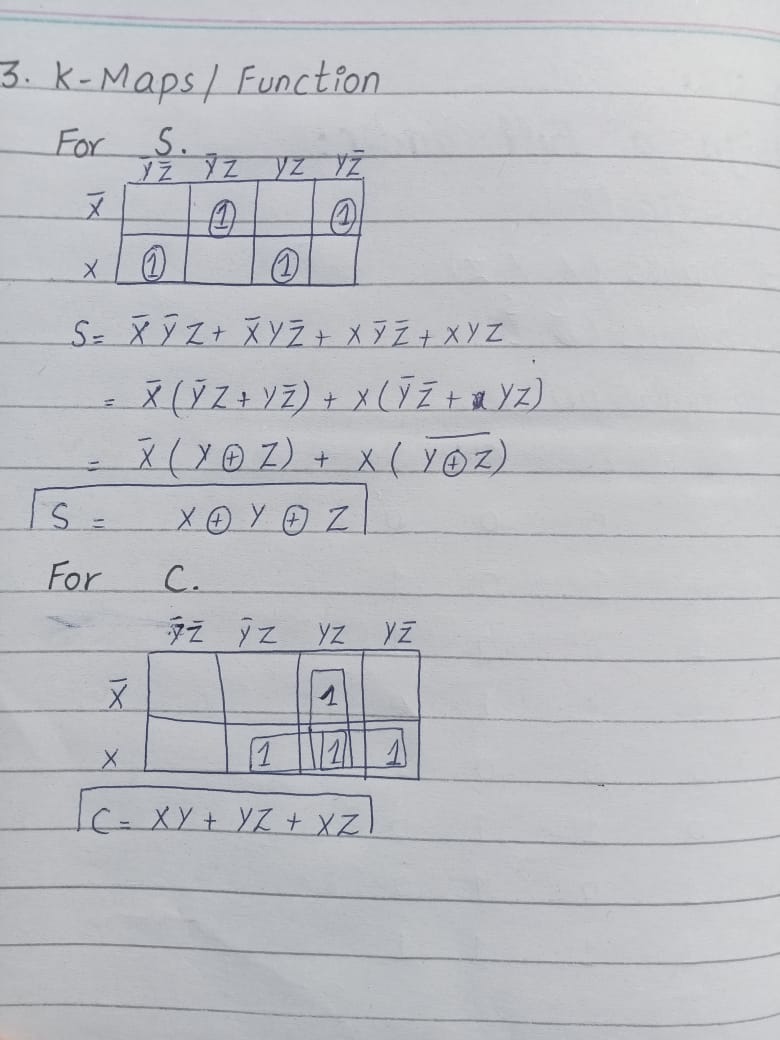 3. K-Maps / Function
For S.
Y̅Z̅ Y̅Z YZ YZ̅
X̅ 1 1
X 1 1
S= X̅Y̅Z + X̅YZ̅ + XY̅Z̅ + XYZ
= X̅(Y̅Z + YZ̅) + X(Y̅Z̅ + YZ)
= X̅(Y⊕Z) + X(Y̅⊕̅Z̅)
S = X⊕Y⊕Z
For C.
Y̅Z̅ Y̅Z YZ YZ̅
X̅ 1
X 1 1 1
C= XY + YZ + XZ